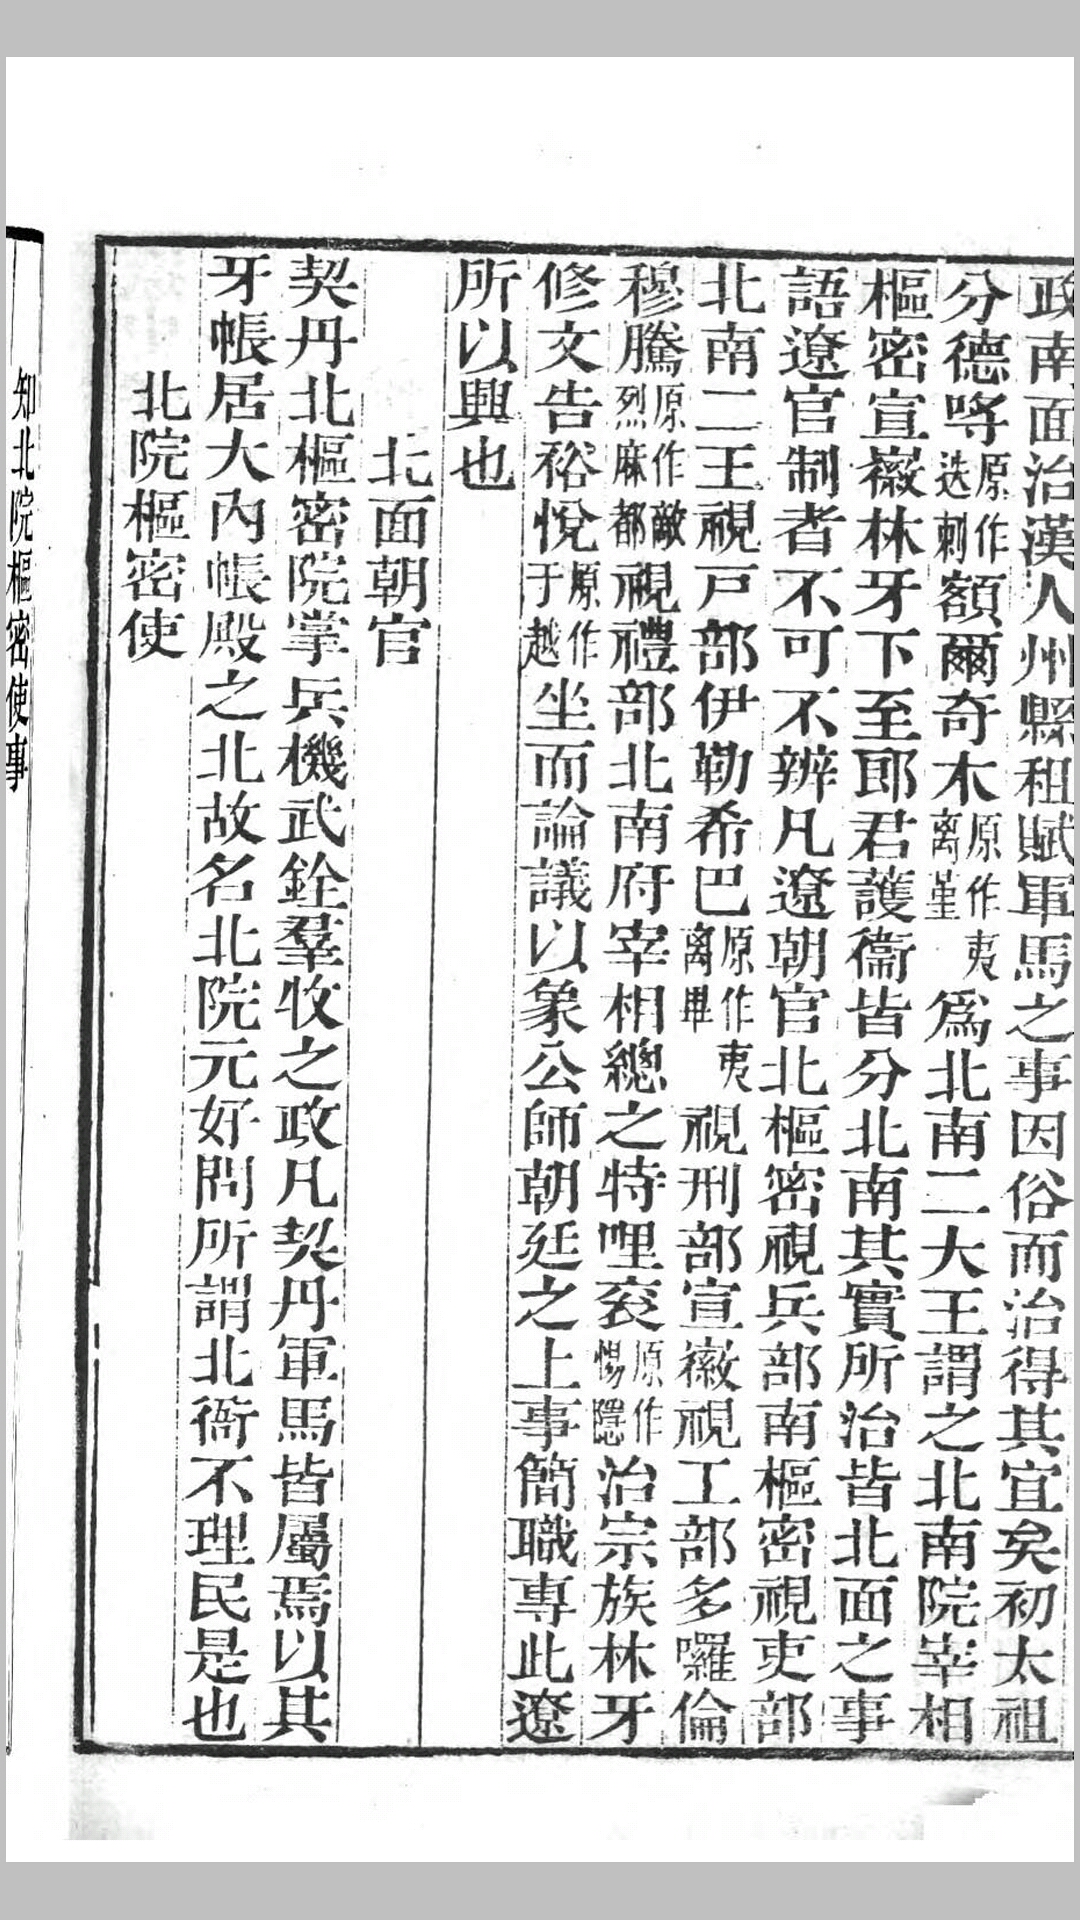 政南面治漢人州縣租賦軍馬之事因俗而治得其宜矣初太祖
分德哷原作迭剌額爾奇木原作夷离堇爲北南二大王謂之北南院宰相
樞密宣徽林牙下至郎君護衞皆分北南其實所治皆北面之事
語遼官制者不可不辨凡遼朝官北樞密視兵部南樞密視吏部
北南二王視戸部伊勒希巴原作夷离畢視刑部宣徽視工部多囉倫
穆騰原作敵烈麻都視禮部北南府宰相總之特哩衮原作惕隱治宗族林牙
修文告裕悅原作于越坐而論議以象公師朝廷之上事簡職專此遼
所以興也
北面朝官
契丹北樞密院掌兵機武銓羣牧之政凡契丹軍馬皆屬焉以其
牙帳居大內帳殿之北故名北院元好問所謂北衙不理民是也
北院樞密使
知北院樞密使事